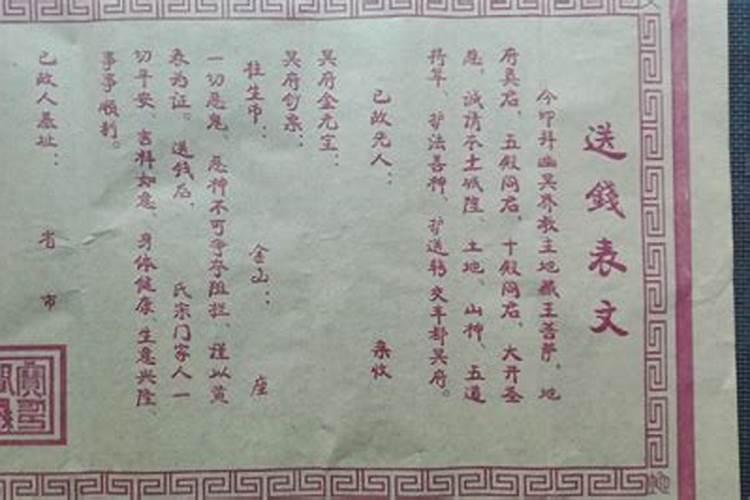 送錢表文
今叩拜幽冥界教主地藏王菩萨、地
府真君、五殿阎君、十殿阎君、大开圣
恩。诚请本土城隍、土地、山神、五道
将军、护法善神、护送转交丰都冥府。
已故先人: 亲收
冥府金元宝:
冥府钞票:
往生币: 金山: 座
一切恶鬼、恶神不可争夺阻拦、谨以黄
表为证。送钱后, 氏宗门家人一
切平安、吉祥如意、身体健康、生意兴隆、
事事顺利。
已故人墓址: 省 市